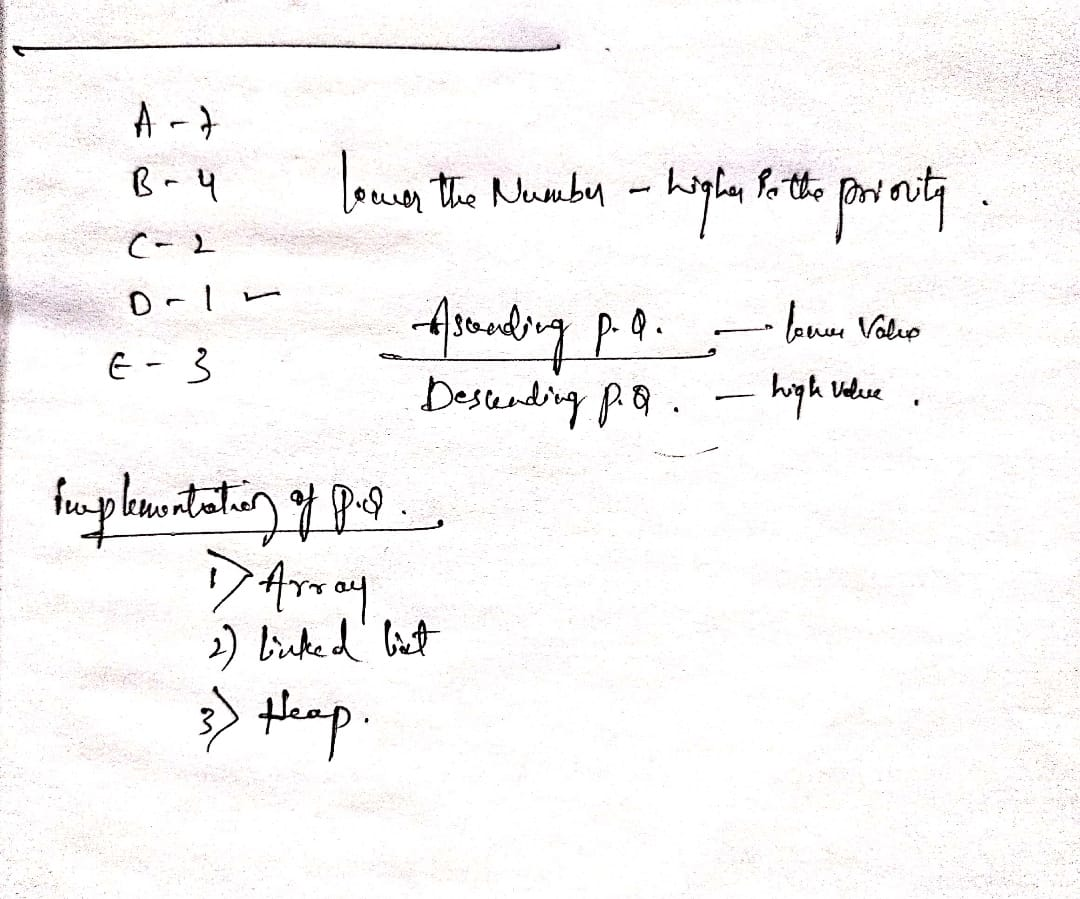 A - 7
B - 4
C - 2
D - 1
E - 3
lower the Number - higher is the priority .
Ascending p. Q. - lower Value
Descending p. Q . - high value .
Implementation of P.Q .
1) Array
2) linked list
3) Heap.